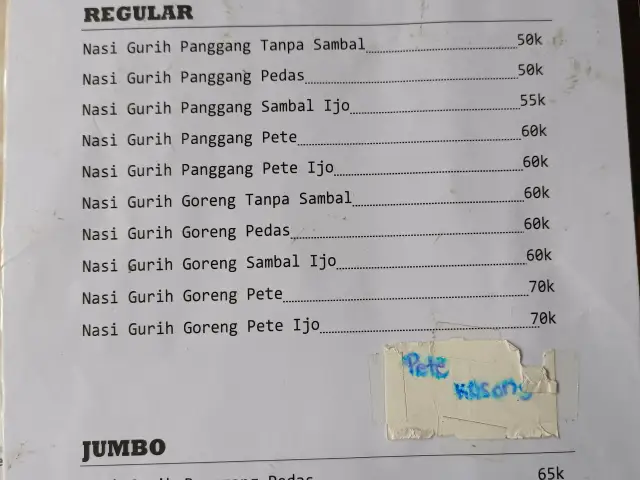 REGULAR
Nasi Gurih Panggang Tanpa Sambal 50k
Nasi Gurih Panggang Pedas 50k
Nasi Gurih Panggang Sambal Ijo 55k
Nasi Gurih Panggang Pete 60k
Nasi Gurih Panggang Pete Ijo 60k
Nasi Gurih Goreng Tanpa Sambal 60k
Nasi Gurih Goreng Pedas 60k
Nasi Gurih Goreng Sambal Ijo 60k
Nasi Gurih Goreng Pete 70k
Nasi Gurih Goreng Pete Ijo 70k
Pete
Kosong
JUMBO
Pedas 65k